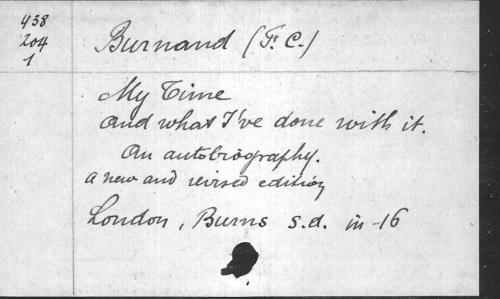 438
204
1
Burnand (F. C.)
My Time
and what I've done with it.
An autobiography.
a new and revised edition
London, Burns s.d. in-16